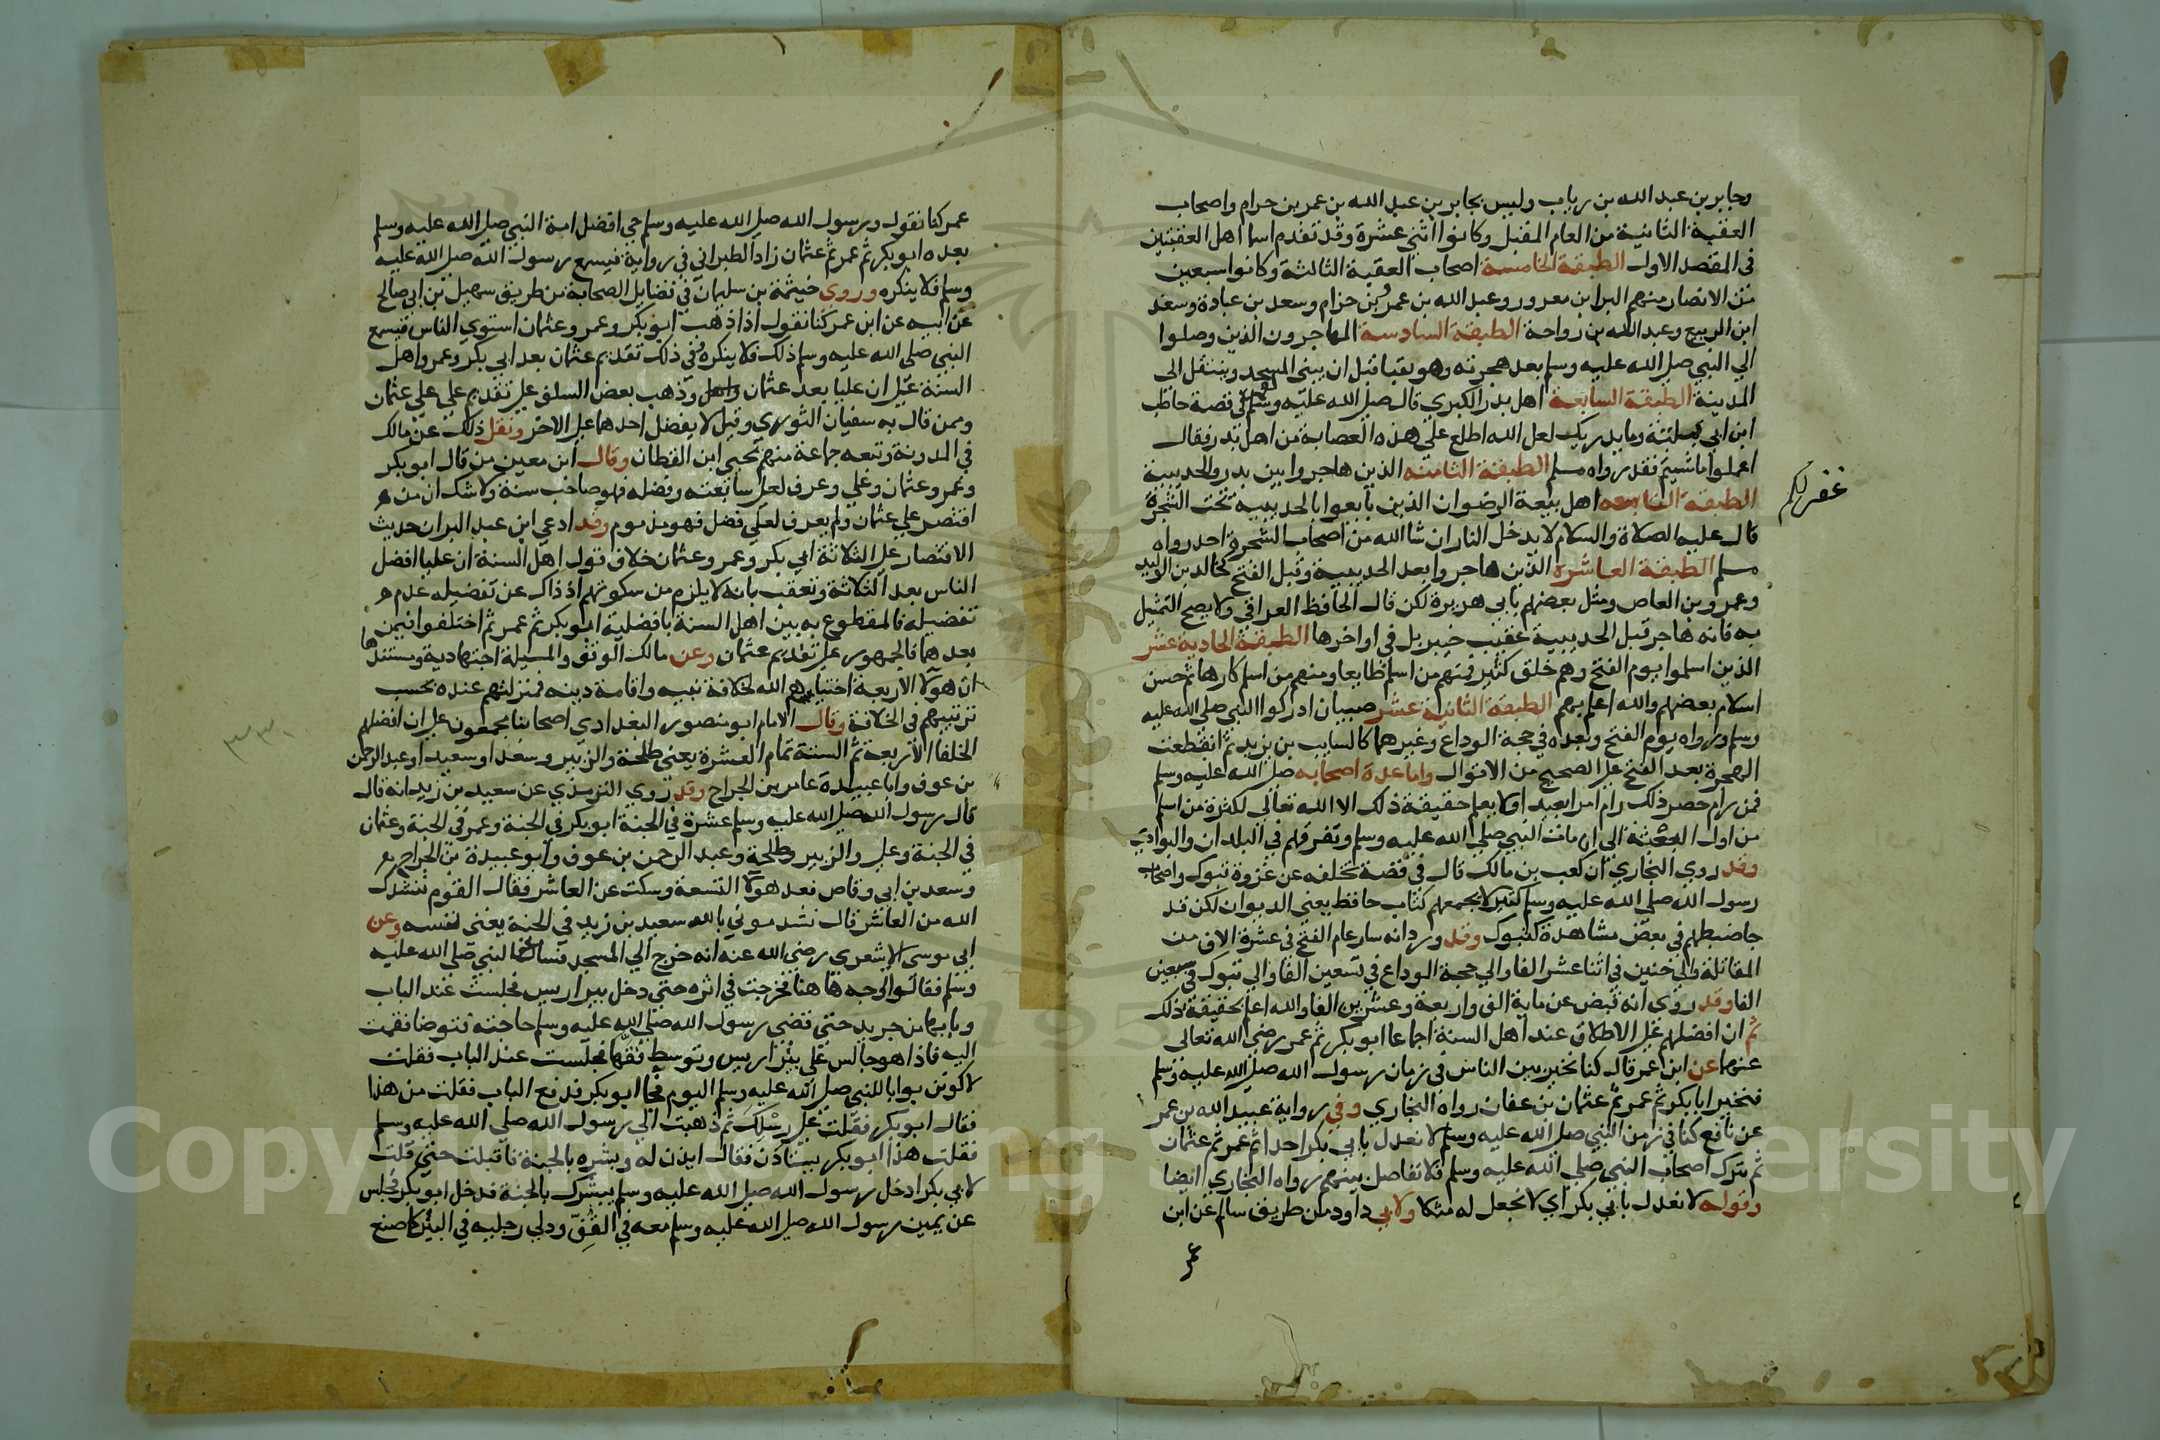 وجابر بن عبد الله بن رياب وليس بجابر بن عبد الله بن عمر بن حرام واصحاب
العقبة الثانية من العام المقبل وكانوا اثني عشرة وقد تقدم اسما اهل العقبتين
في المقصد الاول الطبقة الخامسة اصحاب العقبة الثالثة وكانوا سبعين
من الانصار منهم البرا بن معرور وعبد الله بن عمرو بن حزام وسعد بن عبادة وسعد
ابن الربيع وعبد الله بن رواحة الطبقة السادسة المهاجرون الذين وصلوا
الي النبي صلى الله عليه وسلم بعد هجرته وهو بقبا قبل ان يبني المسجد وينتقل الى
المدينة الطبقة السابعة اهل بدر الكبري قال صلى الله عليه وسلم في قصة حاطب
ابن ابي بلتعة وما يدريك لعل الله اطلع على هذه العصابة من اهل بدر فقال
اعملوا ما شيتم فقد رواه مسلم الطبقة الثامنة الذين هاجروا بين بدر والحديبية
غفرلكم
الطبقة التاسعة اهل بيعة الرضوان الذين بايعوا بالحديبية تحت الشجرة
قال عليه الصلاة والسلام لا يدخل النار ان شا الله من اصحاب الشجرة احد رواه
مسلم الطبقة العاشرة الذين هاجروا بعد الحديبية وقبل الفتح كخالد بن الوليد
وعمرو بن العاص ومثل بعضهم بابي هريرة لكن قال الحافظ العراقي ولا يصح التمثيل
به فانه هاجر قبل الحديبية عقيب خيبر بل في اواخرها الطبقة الحادية عشر
الذين اسلموا يوم الفتح وهم خلق كثير فمنهم من اسلم طايعا ومنهم من اسلم كارها ثم حسن
اسلام بعضهم والله اعلم بهم الطبقة الثانية عشر صبيان ادركوا النبي صلى الله عليه
وسلم ورواه يوم الفتح وبعده في حجة الوداع وغيرهما كالسايب بن يزيد ثم انقطعت
الهجرة بعد الفتح على الصحيح من الاقوال واما عدة اصحابه صلى الله عليه وسلم
فمن رام حصر ذلك رام امرا بعيدا ولا يعلم حقيقة ذلك الا الله تعالى لكثرة من اسلم
من اول البعثة الى ان مات النبي صلى الله عليه وسلم وتفرقهم في البلدان والبوادي
وقد روي البخاري ان كعب بن مالك قال في قصة تخلفه عن غزوة تبوك واصحاب
رسول الله صلى الله عليه وسلم كثير لا يجمعهم كتاب حافظ يعني الديوان لكن قد
جا ضبطهم في بعض مشاهدة كتبوك وقد ورد انه سار عام الفتح في عشرة الاف من
المقاتلة والى حنين في اثنا عشر الفا والي حجة الوداع في تسعين الفا والي تبوك في سبعين
الفا وقد روي انه قبض عن ماية الف واربعة وعشرين الفا والله اعلم بحقيقة ذلك
ثم ان افضلهم على الاطلاق عند اهل السنة اجماعا ابو بكر ثم عمر رضي الله تعالى
عنهما عن ابن عمر قال كنا نخير بين الناس في زمان رسول الله صلى الله عليه وسلم
فنخير ابا بكر ثم عمر ثم عثمان بن عفان رواه البخاري وفي رواية عبيد الله بن عمر
عن نافع كنا في زمن النبي صلى الله عليه وسلم لا نعدل بابي بكر احدا ثم عمر ثم عثمان
ثم نترك اصحاب النبي صلى الله عليه وسلم فلا نفاضل بينهم رواه البخاري ايضا
وقوله لا نعدل بابي بكر اي لا نجعل له مثلا ولابي داود من طريق سالم عن ابن
عمر
عمر كنا نقول ورسول الله صلى الله عليه وسلم حي افضل امة النبي صلى الله عليه وسلم
بعده ابو بكر ثم عمر ثم عثمان زاد الطبراني في رواية فيسمع رسول الله صلى الله عليه
وسلم فلا ينكره وروي خيثمة بن سليمان في فضايل الصحابة من طريق سهيل بن ابي صالح
عن ابيه عن ابن عمر كنا نقول اذا ذهب ابو بكر وعمر وعثمان استوي الناس فيسمع
النبي صلى الله عليه وسلم ذلك فلا ينكره وفي ذلك تقديم عثمان بعد ابي بكر وعمر واهل
السنة على ان عليا بعد عثمان وذهب بعض السلف على تقديم علي على عثمان
وممن قال به سفيان الثوري وقيل لا يفضل احدهما على الاخر ونقل ذلك عن مالك
في المدونة وتبعه جماعة منهم يحيي ابن القطان وقال ابن معين من قال ابو بكر
وعمر وعثمان وعلي وعرف لعلي سابقته وفضله فهو صاحب سنة ولا شك ان من
اقتصر على عثمان ولم يعرف لعلي فضل فهو مذموم وقد ادعي ابن عبد البر ان حديث
الاقتصار على الثلاثة ابي بكر وعمر وعثمان خلاف قول اهل السنة ان عليا افضل
الناس بعد الثلاثة وتعقب بانه لا يلزم من سكوتهم اذ ذاك عن تفضيله عدم
تفضيله فالمقطوع به بين اهل السنة بافضلية ابو بكر ثم عمر ثم اختلفوا فيمن
بعدهما فالجمهور على تقديم عثمان وعن مالك الوقف والمسيلة اجتهادية ومستندها
ان هولا الاربعة اختيارهم الله لخلافة نبيه واقامة دينه فمنزلتهم عنده بحسب
ترتيبهم في الخلافة وقال الامام ابو منصور البغدادي اصحابنا مجمعون على ان افضلهم
الخلفا الاربعة ثم الستة تمام العشرة يعني طلحة والزبير وسعدا وسعيدا وعبد الرحمن
بن عوف وابا عبيدة عامر بن الجراح وقد روي الترمذي عن سعيد بن زيد انه قال
قال رسول الله صلى الله عليه وسلم عشرة في الجنة ابو بكر في الجنة وعمر في الجنة وعثمان
في الجنة وعلي والزبير وطلحة وعبد الرحمن بن عوف وابو عبيدة بن الجراح
وسعد بن ابي وقاص فعد هولا التسعة وسكت عن العاشر فقال القوم ننشدك
الله من العاشر قال نشدتموني بالله سعيد بن زيد في الجنة يعني نفسه وعن
ابي موسى الاشعري رضي الله عنه انه خرج الي المسجد فسال عن النبي صلى الله عليه
وسلم فقالوا وجه هاهنا فخرجت في اثره حتى دخل بير اريس فجلست عند الباب
وبابها من جريد حتى قضى رسول الله صلى الله عليه وسلم حاجته فتوضا فقمت
اليه فاذا هو جالس على بئر اريس وتوسط قفها فجلست عند الباب فقلت
لاكونن بوابا للنبي صلى الله عليه وسلم اليوم فجا ابو بكر فدفع الباب فقلت من هذا
فقال ابو بكر فقلت على رسلك ثم ذهبت الى رسول الله صلى الله عليه وسلم
فقلت هذا ابو بكر يستاذن فقال ايذن له وبشره بالجنة فاقبلت حتى قلت
لابي بكر ادخل رسول الله صلى الله عليه وسلم يبشرك بالجنة فدخل ابو بكر فجلس
عن يمين رسول الله صلى الله عليه وسلم معه في القف ودلي رجليه في البئر كما صنع